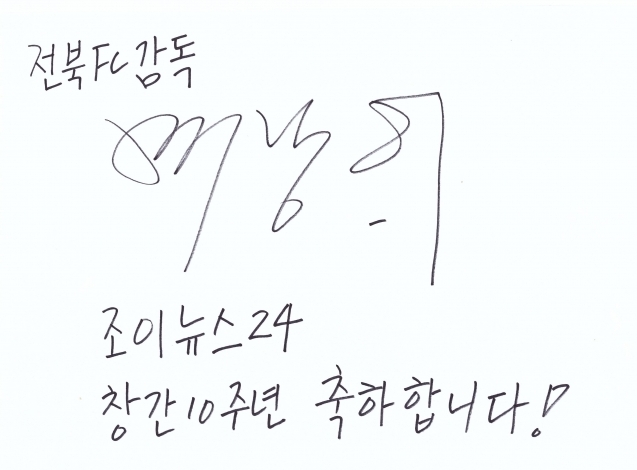 전북FC감독
조이뉴스24
창간10주년 축하합니다!